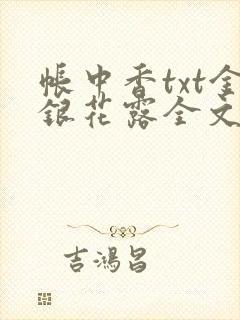 帐中香txt金
银花露全文
吉鸿昌